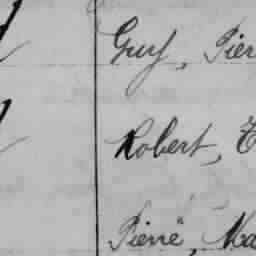 Guy, Pier
Robert, E
Pierre, Ma